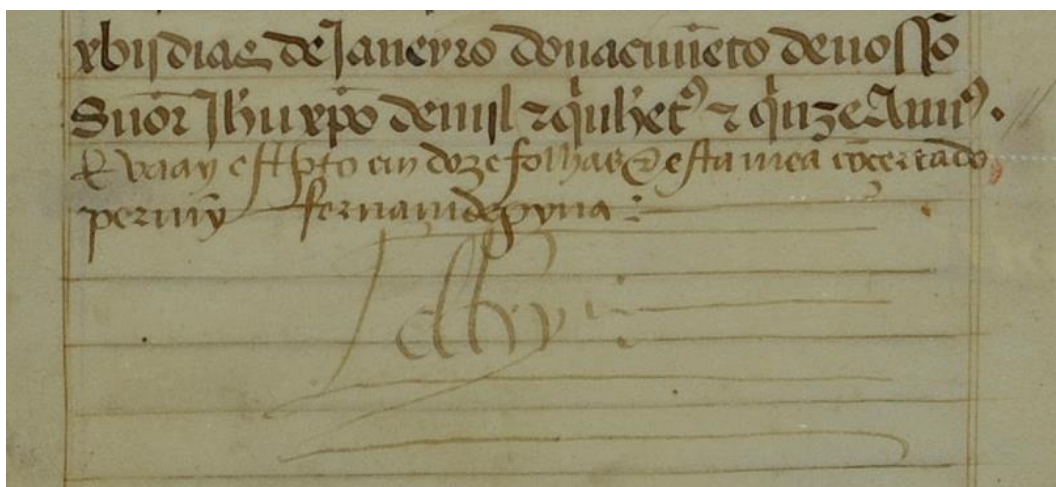 xbij dias de Janeyro do nacimēto de nosso
Snōr Jhū xp̄o de mil ⁊ qinhētᵒˢ ⁊ qinze Annᵒˢ.
E vaay espto em doze folhas & esta mea cōcertado
per mỹ fernam de pyna :
El Rey :